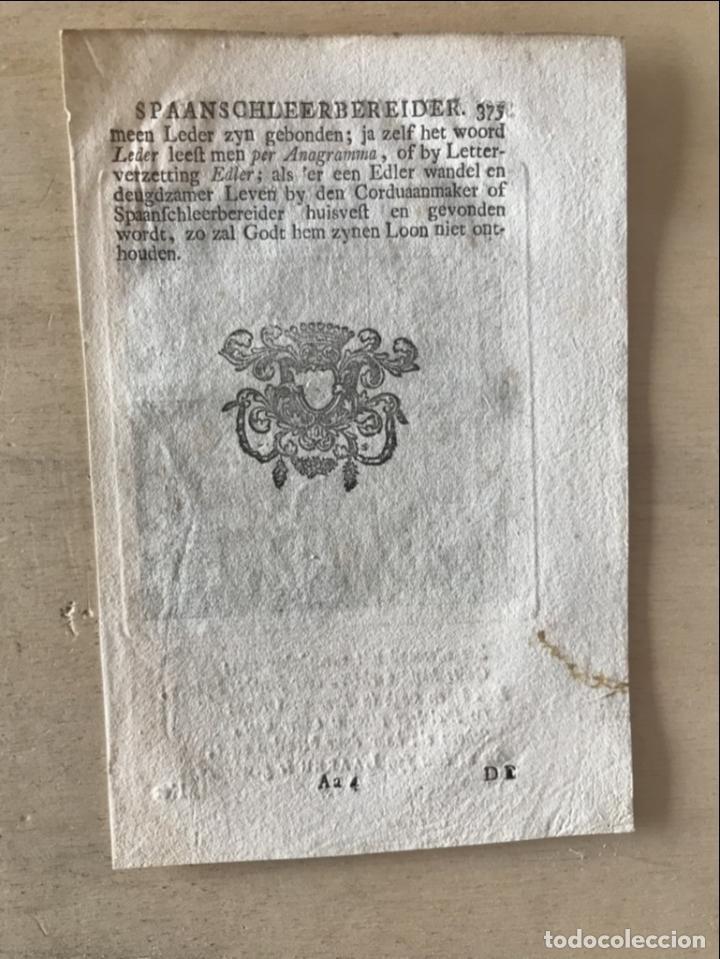 SPAANSCHLEERBEREIDER. 375
meen Leder zyn gebonden; ja zelf het woord
Leder leeſt men per Anagramma, of by Letter-
verzetting Edler; als 'er een Edler wandel en
deugdzamer Leven by den Corduaanmaker of
Spaanſchleerbereider huisveſt en gevonden
wordt, zo zal Godt hem zynen Loon niet ont-
houden.
Aa 4 DE
todocoleccion